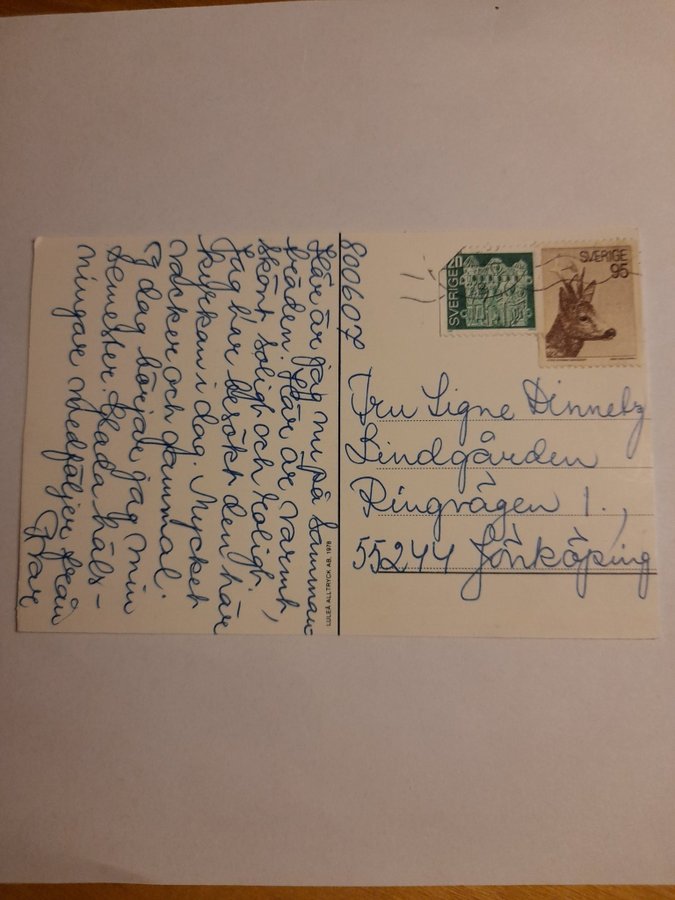 800607
Här är jag nu på Samman-
träden. Här är varmt,
skönt, soligt och roligt.
Jag har besökt den här
kyrkan i dag. Mycket
vacker och gammal.
I dag börjar jag min
semester. Glada häls-
ningar medföljer från
SVERIGE
SVERIGE
95
Fru Signe
Lindgården
Ringvägen 1.,
55244 Jönköping
LULEÅ ALLTRYCK AB, 1978